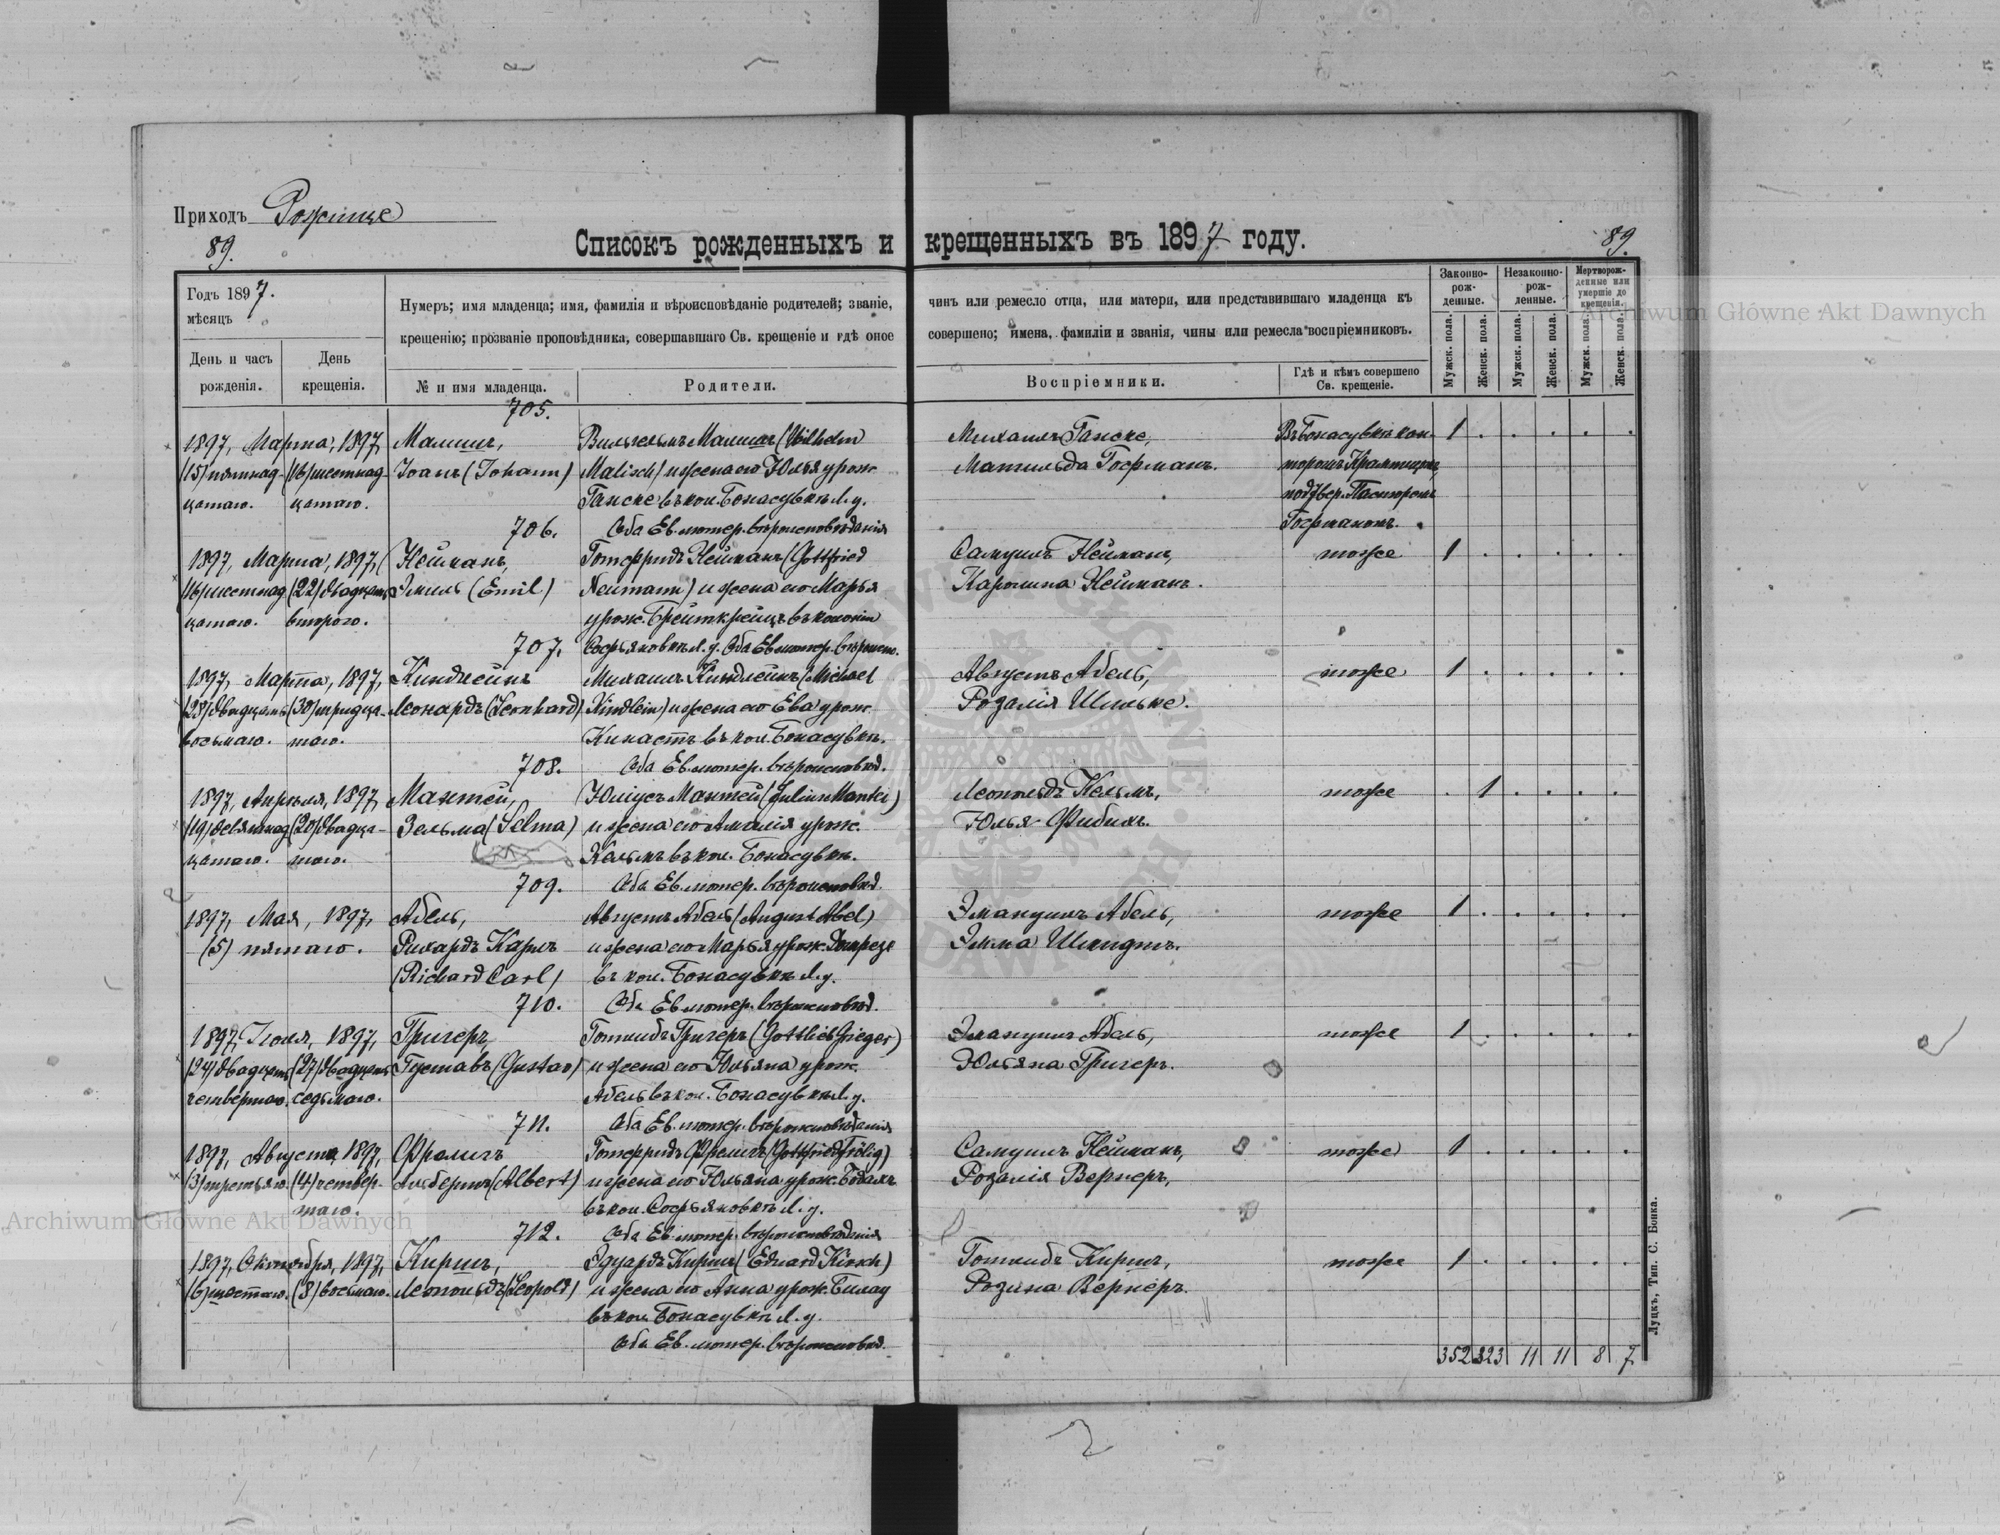 Приходъ Рожище
89.
89.
Списокъ рожденныхъ и крещенныхъ въ 1897 году.
Годъ 1897.
мѣсяцъ
День и часъ рожденія.
День крещенія.
Нумеръ; имя младенца; имя, фамилія и вѣроисповѣданіе родителей; званіе, чинъ или ремесло отца, или матери, или представившаго младенца къ
крещенію; прозваніе проповѣдника, совершавшаго Св. крещеніе и гдѣ оное совершено; имена, фамиліи и званія, чины или ремесла воспріемниковъ.
№ и имя младенца.
Родители.
Воспріемники.
Гдѣ и кѣмъ совершено Св. крещеніе.
Законно-рож-денные.
Незаконно-рож-денные.
Мертворож-денные или умершіе до крещенія.
Мужск. пола.
Женск. пола.
Мужск. пола.
Женск. пола.
Мужск. пола.
Женск. пола.
705.
1897, Марта, 1897, Малишъ, Вильгельмъ Малишъ (Wilhelm Михаилъ Ганске, Въ Бонасувкѣ кан- 1 . . . . .
(15) пятнад- (16) шестнад- Іоанъ (Johann) Malisch) и жена его Юлья урож. Матильда Госрманъ.
цатаго. цатаго. Ганске въ кол. Бонасувкѣ Л. у. Пасторомъ
706. Оба Ев. лютер. вѣроисповѣданія
1897, Марта, 1897, Нейманъ, Готфридъ Нейманъ (Gottfried Самуилъ Нейманъ, тоже 1 . . . . .
(16) шестнад (22) двадцать Эмиль (Emil) Neumann) и жена его Марья Каролина Нейманъ.
цатаго. второго. урож. Брейткрейцъ въ колоніи
707. Софьяновкѣ Л. у. Оба Ев. лютер. вѣроисп.
1897, Марта, 1897, Киндлейнъ Михаилъ Киндлейнъ (Michael Августъ Абель, тоже 1 . . . . .
(28) двадцать (30) тридца- Леонардъ (Leonhard) Kindlein) и жена его Ева урож. Розалія Шильке.
восьмаго. таго. Кинастъ въ кол. Бонасувкѣ.
708. Оба Ев. лютер. вѣроисповѣд.
1897, Апрѣля, 1897, Мантей, Юліусъ Мантей (Julius Mantei) Леопольдъ Кельмъ, тоже . 1 . . . .
(19) девятнад (20) двадца- Зельма (Selma) и жена его Амалія урож. Юлья Фибихъ.
цатаго. таго. Кельмъ въ кол. Бонасувкѣ.
709. Оба Ев. лютер. вѣроисповѣд.
1897, Мая, 1897, Абель, Августъ Абель (August Abel) Эмануилъ Абель, тоже 1 . . . . .
(5) пятаго. Рихардъ Карлъ и жена его Марья урож. Эмма Шмидтъ.
(Richard Carl) въ кол. Бонасувкѣ Л. у.
710. Оба Ев. лютер. вѣроисповѣд.
1897, Іюля, 1897, Григеръ, Готлибъ Григеръ (Gottlieb Grieger) Эмануилъ Абель, тоже 1 . . . . .
(24) двадцать (27) двадцать Густавъ (Gustav) и жена его Юльяна урож. Юльяна Григеръ.
четвертаго. седьмаго. Абель въ кол. Бонасувкѣ Л. у.
711. Оба Ев. лютер. вѣроисповѣданія
1897, Августа, 1897, Фрелигъ Готфридъ Фрелигъ (Gottfried Frölig) Самуилъ Нейманъ, тоже 1 . . . . .
(3) третьяго (4) четвер- Альбертъ (Albert) и жена его Юльяна урож. Розалія Вернеръ,
таго. въ кол. Софьяновкѣ Л. у.
712. Оба Ев. лютер. вѣроисповѣданія
1897, Октября, 1897, Киршъ, Эдуардъ Киршъ (Eduard Kirsch) Готлибъ Киршъ, тоже 1 . . . . .
(6) шестаго. (8) восьмаго. Леопольдъ (Leopold) и жена его Анна урож. Билау Розина Вернеръ.
въ кол. Бонасувкѣ Л. у.
Оба Ев. лютер. вѣроисповѣд.
352 323 11 11 8 7
Луцкъ, Тип. С. Бонка.
Archiwum Główne Akt Dawnych
Archiwum Główne Akt Dawnych